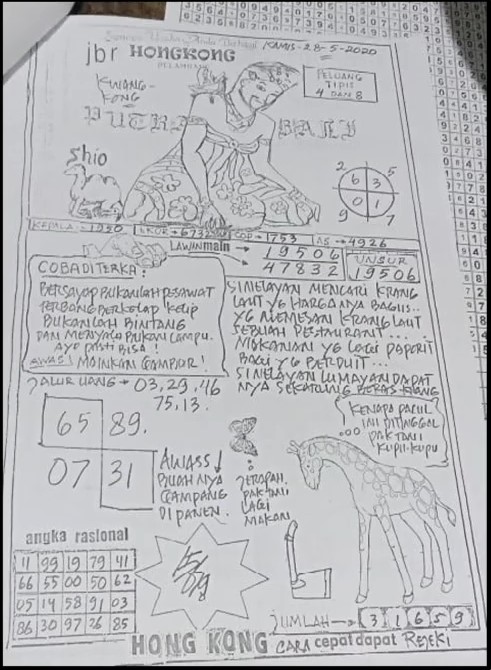 KAMIS-28-5-2020
jbr HONGKONG
KWANG-
KONG
PELUANG
TIPIS
4 DAN 8
PUTRA BALI
Shio
2 5
6 3
0 1
9 7
KEPALA: 1950
EKOR→67320
COP→1753
AS→4926
LAWAN main → 19506
47832
UNSUR
19506
COBA DITERKA:
BERSAYAP BUKANLAH PESAWAT
TERBANG BERKELAP KELIP
BUKANLAH BINTANG
DAN MENYALA BUKAN LAMPU.
AYO PASTI BISA!
AWAS! MAINKAN CAMPUR!
SI NELAYAN MENCARI KRANG
LAUT YG HARGANYA BAGUS..
YG MEMESAN KRANG LAUT
SEBUAH RESTAURANT...
MAKANAN YG LAGI PAPORIT
BAGI YG BERDUIT...
SI NELAYAN LUMAYAN DAPAT
NYA SEKARUNG BERAS KRANG
JALUR UANG → 03,29,46
75,13.
65 89.
07 31
AWASS!
BUAHNYA
GAMPANG
DI PANEN.
TERAPAH.
PAK TANI
LAGI
MAKAN
KENAPA PACUL
INI DITINGGAL
PAK TANI
KUPU-KUPU
angka rasional
11 99 19 79 41
66 55 00 50 62
05 14 58 91 03
86 30 97 26 85
JUMLAH → 3 1 6 5 9
HONG KONG CARA cepat dapat REJEKI